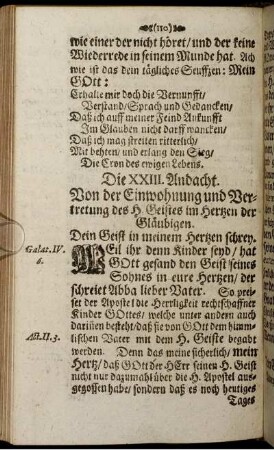 (110)
wie einer der nicht höret/ und der keine
Wiederrede in seinem Munde hat. Ach
wie ist das dein tägliches Seufftzen: Mein
GOtt:
Erhalte mir doch die Vernunfft/
Verstand/ Sprach und Gedancken/
Daß ich auff meiner Feind Ankunfft
Im Glauben nicht darff wancken/
Daß ich mag streiten ritterlich/
Mit behten/ und erlang den Sieg/
Die Cron des ewigen Lebens.
Die XXIII. Andacht.
Von der Einwohnung und Ver-
tretung des H. Geistes im Hertzen der
Gläubigen.
Dein Geist in meinem Hertzen schrey.
Galat. IV.
6.
WEil ihr denn Kinder seyd/ hat
GOtt gesand den Geist seines
Sohnes in eure Hertzen/ der
schreiet Abba lieber Vater. So prei-
set der Apostel die Herrligkeit rechtschaffner
Kinder GOttes/ welche unter andern auch
darinnen besteht/ daß sie von GOtt dem himm-
Act. II. 3.
lischen Vater mit dem H. Geiste begabt
werden. Denn das meine sicherlich/ mein
Hertz/ daß GOtt der HErr seinen H. Geist
nicht nur dazumahl über die H. Apostel aus-
gegossen habe/ sondern daß es noch heutiges
Tages